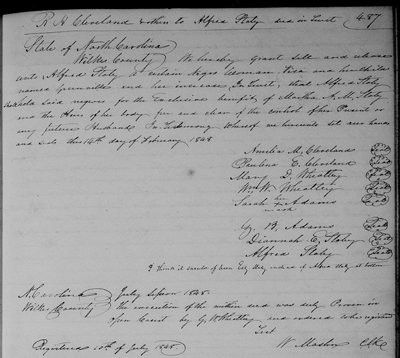 R H Cleveland & others to Alfred Staley deed in Trust 487
State of North Carolina
Wilkes County We hereby grant sell and release
unto Alfred Staley a certain Negro Woman Visa and her child
named Greenville and her increase In trust, that Alfred Staley
hold said negroes for the Exclusive benefit of Martha A. M. Staley
and the Heirs of her body free and clear of the control of her Present or
any future Husbands In Testimony Whereof we hereunto set our hands
and seals this 14th day of February 1848
Amelia M. Cleveland Seal
Paulina E. Cleveland Seal
Mary D. Wheatley Seal
Wm W. Wheatley Seal
Sarah her Adams Seal
mark
B. Adams Seal
Diannah E. Staley Seal
Alfred Staley Seal
N. Carolina July Session 1848.
Wilkes County The execution of the within deed was duly Proven in
open Court by W. Wheatley and ordered to be registered
Test
Registered 10th of July 1848 W. Mastin Clk